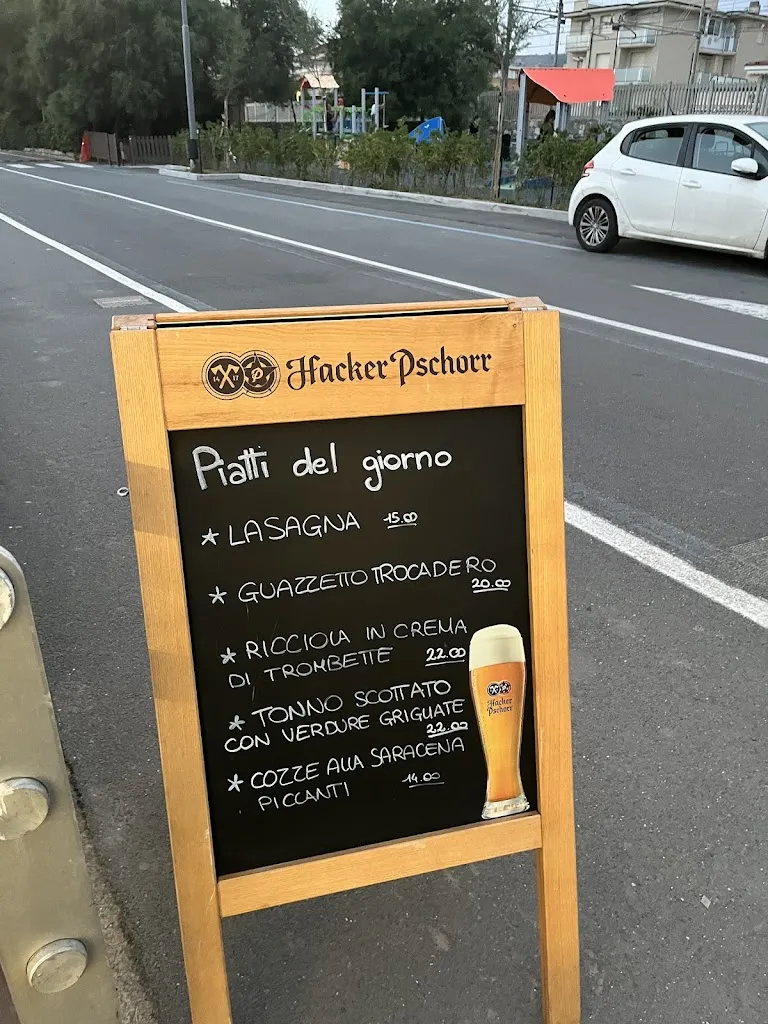 Hacker Pschorr
Piatti del giorno
* LASAGNA 15.00
* GUAZZETTO TROCADERO
20.00
* RICCIOLA IN CREMA
DI TROMBETTE 22.00
* TONNO SCOTTATO
CON VERDURE GRIGLIATE
22.00
* COZZE ALLA SARACENA
PICCANTI 14.00
Hacker
Pschorr